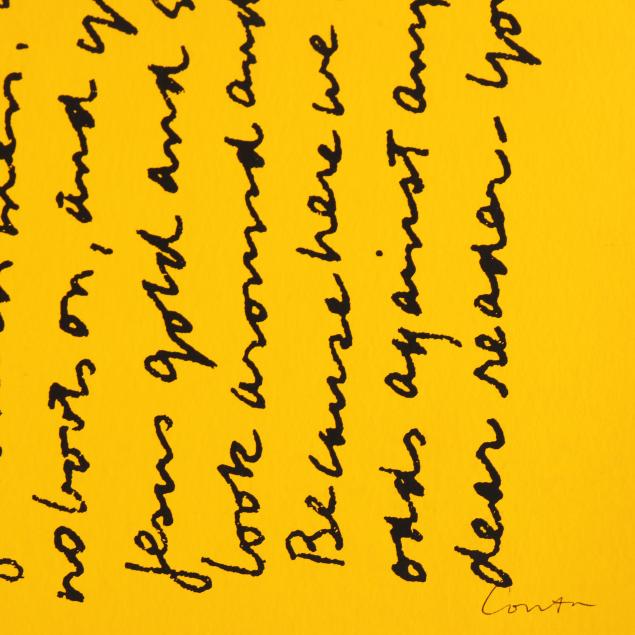 no boots on, and
Jesus gold and
look around and
Because here we
odds against any
dear reader - you